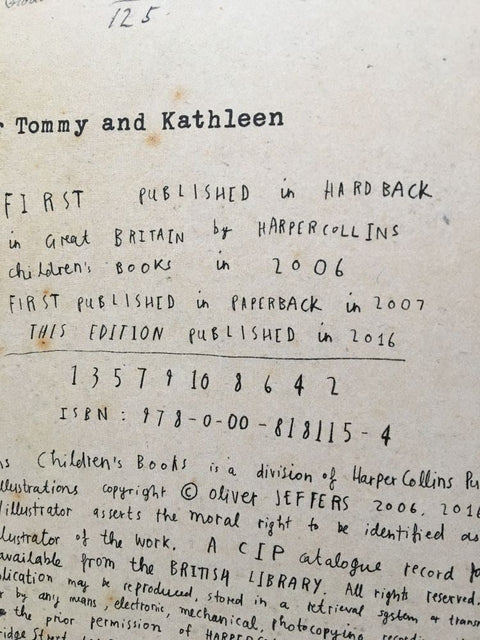 125
Tommy and Kathleen
FIRST PUBLISHED in HARDBACK
in Great BRITAIN by HARPERCOLLINS
children's BOOKS in 2006
FIRST PUBLISHED in PAPERBACK in 2007
THIS EDITION PUBLISHED in 2016
1 3 5 7 9 10 8 6 4 2
ISBN : 978-0-00-818115-4
Children's Books is a division of HarperCollins
illustrations copyright © oliver JEFFERS 2006, 2016
illustrator asserts the moral right to be identified as
illustrator of the work. A CIP catalogue record
available from the BRITISH LIBRARY. All rights reserved.
may be reproduced, stored in a retrieval system or
by any means, electronic, mechanical, photocopying
the prior permission of